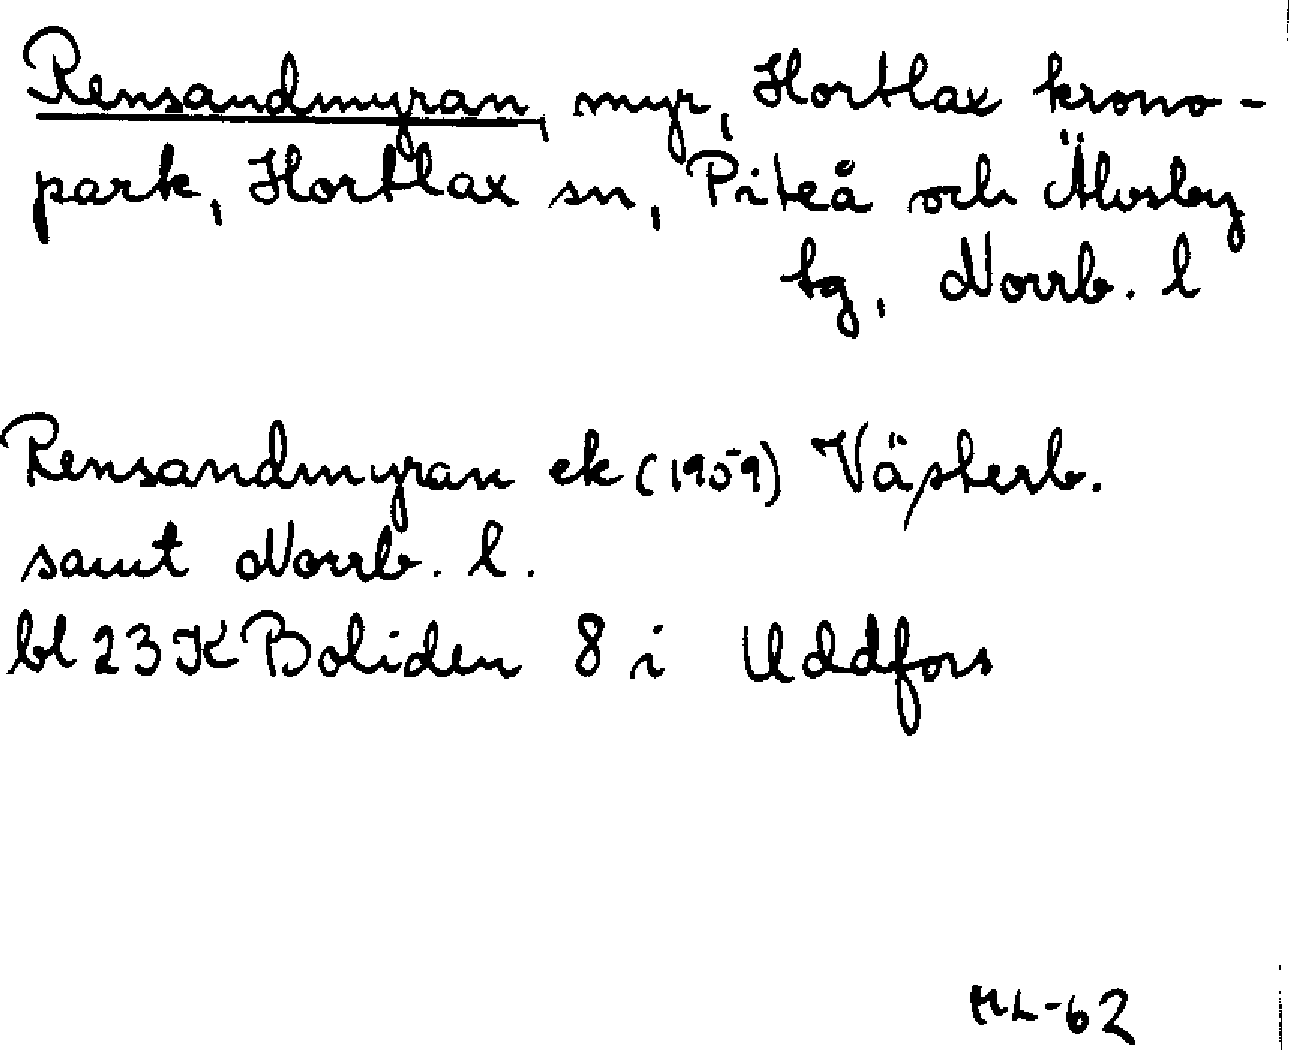 Rensandmyran, myr, Hortlax krono-
park, Hortlax sn, Piteå och Älvsby
tg, Norrb. l
Rensandmyran ek (1959) Västerb.
samt Norrb. l.
bl 23 K Boliden 8 i Uddfors
ML-62